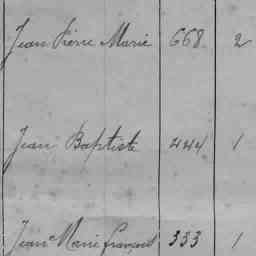 Jean Pierre Marie 668 2
Jean Baptiste 444 1
Jean Marie François 333 1